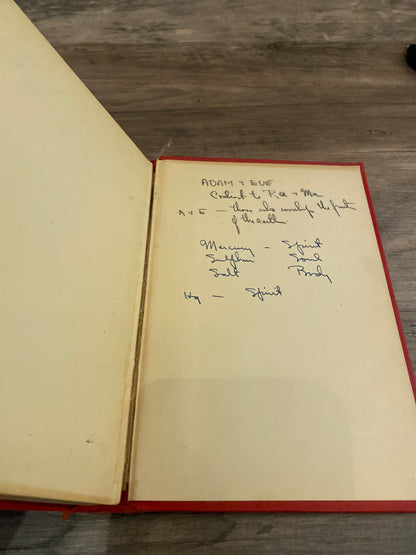 ADAM & EVE
to Ra & Ma
A & E — those who worship the fruits
of the earth.
Mercury — Spirit
Sulphur Soul
Salt Body
Hg — Spirit